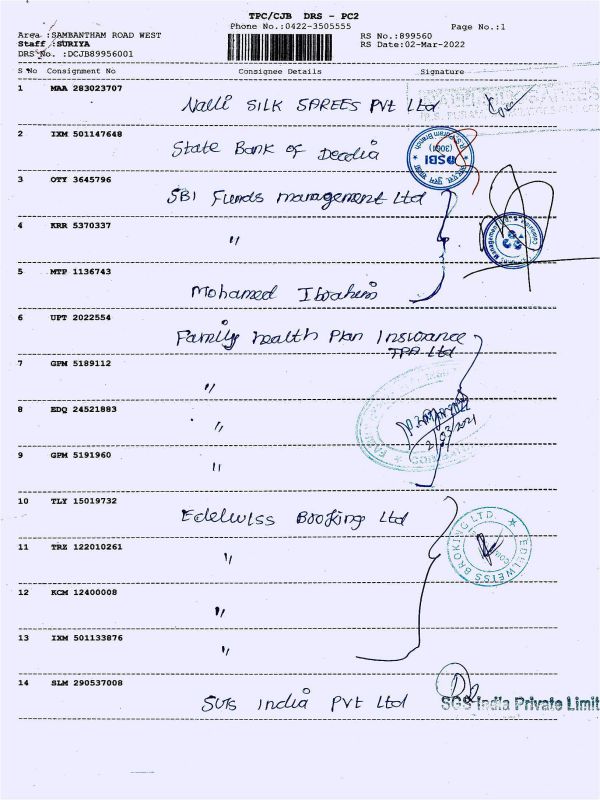 TPC/CJB DRS - PC2
Phone No.:0422-3505555 Page No.:1
Area :SAMBANTHAM ROAD WEST RS No.:899560
Staff :SURIYA RS Date:02-Mar-2022
DRS No. :DCJB89956001
S No Consignment No Consignee Details Signature
1 MAA 283023707 Nalli SILK SAREES Pvt Ltd
2 IXM 501147648 State Bank of
SBI (3061)
3 OTY 3645796 SBI Funds management Ltd
4 KRR 5370337 "
5 MTP 1136743 Mohamed Ibrahim
6 UPT 2022554 Family health Plan Insurance
TPA Ltd
7 GPM 5189112 "
8 EDQ 24521883 "
9 GPM 5191960 "
10 TLY 15019732 Edelwiss Booking Ltd
EDELWEISS BROKING LTD.
11 TRZ 122010261 "
12 KCM 12400008 "
13 IXM 501133876 "
14 SLM 290537008 SGS India Pvt Ltd
SGS India Private Limit